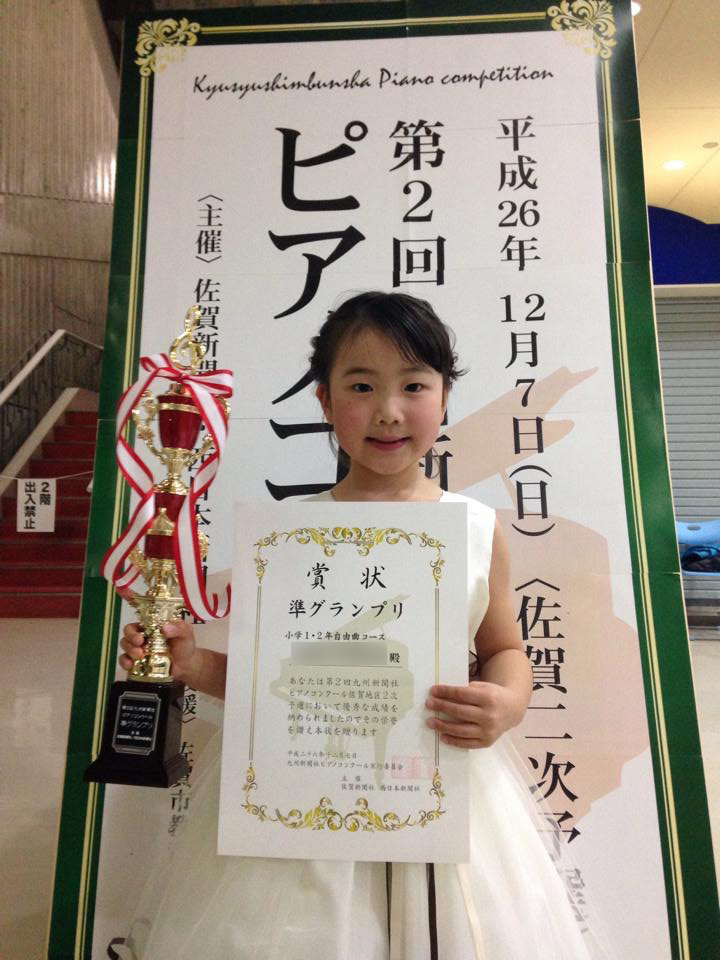 Kyusyushimbunsha Piano competition
平成26年 12月7日(日) 〈佐賀二次予
第2回
ピアノコ
〈主催〉佐賀新聞
佐賀市教
2階
出入禁止
賞 状
準グランプリ
小学1・2年自由曲コース
殿
あなたは第2回九州新聞社
ピアノコンクール佐賀地区2次
予選において優秀な成績を
納められましたのでその栄誉
を讃え本状を贈ります
平成二十六年十二月七日
九州新聞社ピアノコンクール実行委員会
主 催
佐賀新聞社 西日本新聞社
ピアノコンクール
準グランプリ